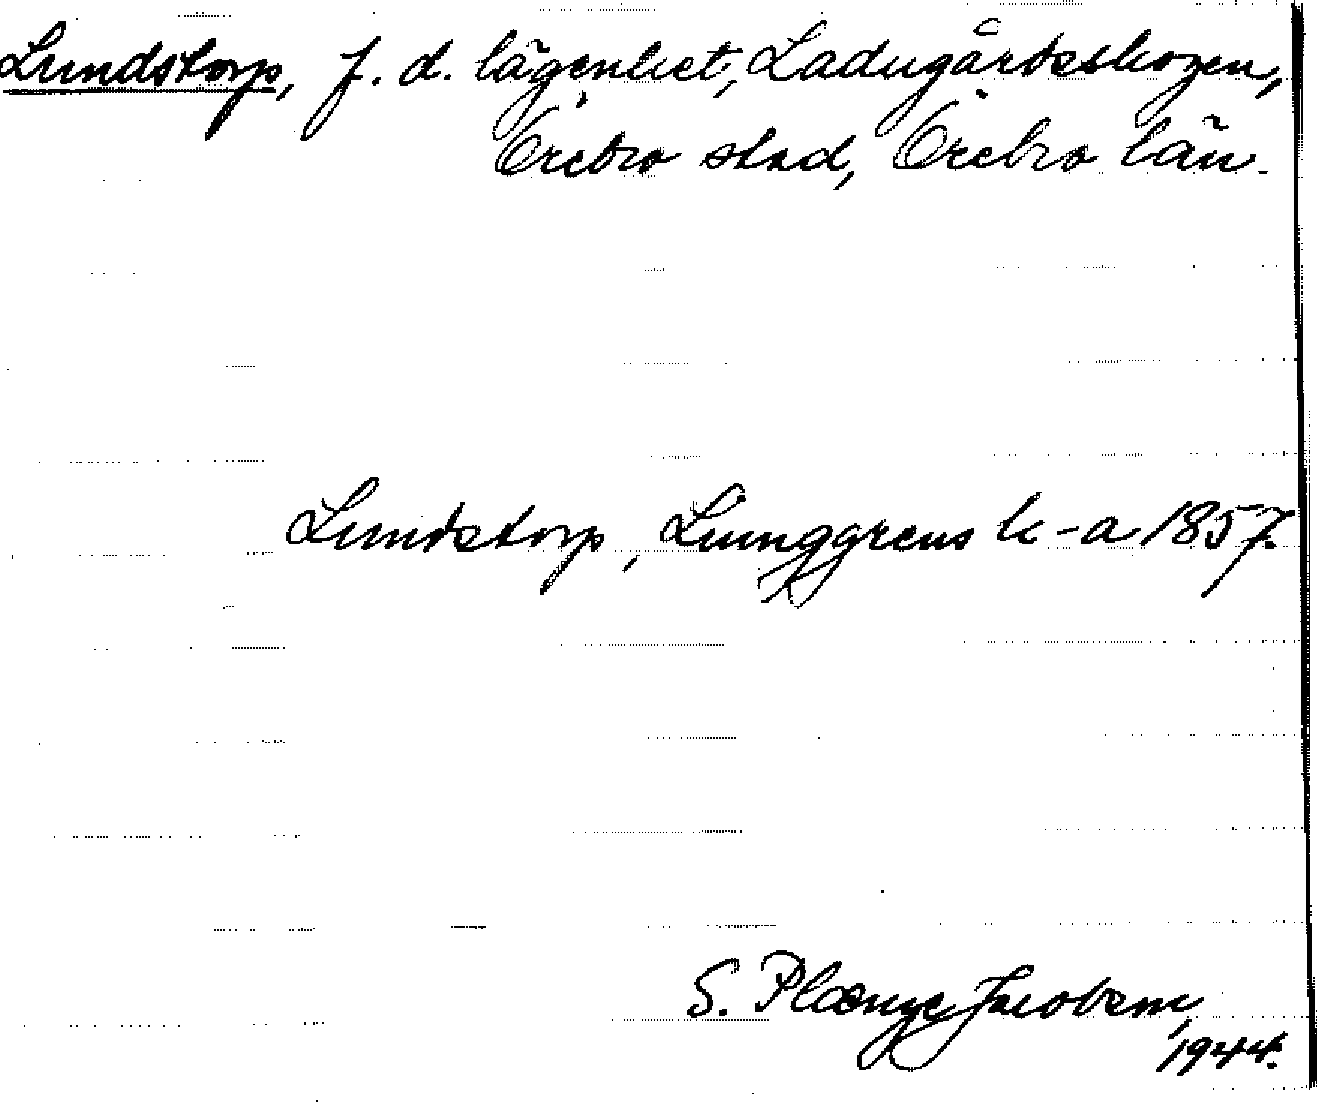 Lundstorp, f. d. lägenhet, Ladugårdsskogen,
Örebro stad, Örebro län.
Lundstorp, Ljunggrens k-a 1857.
S. Plænge Jacobson,
1944.